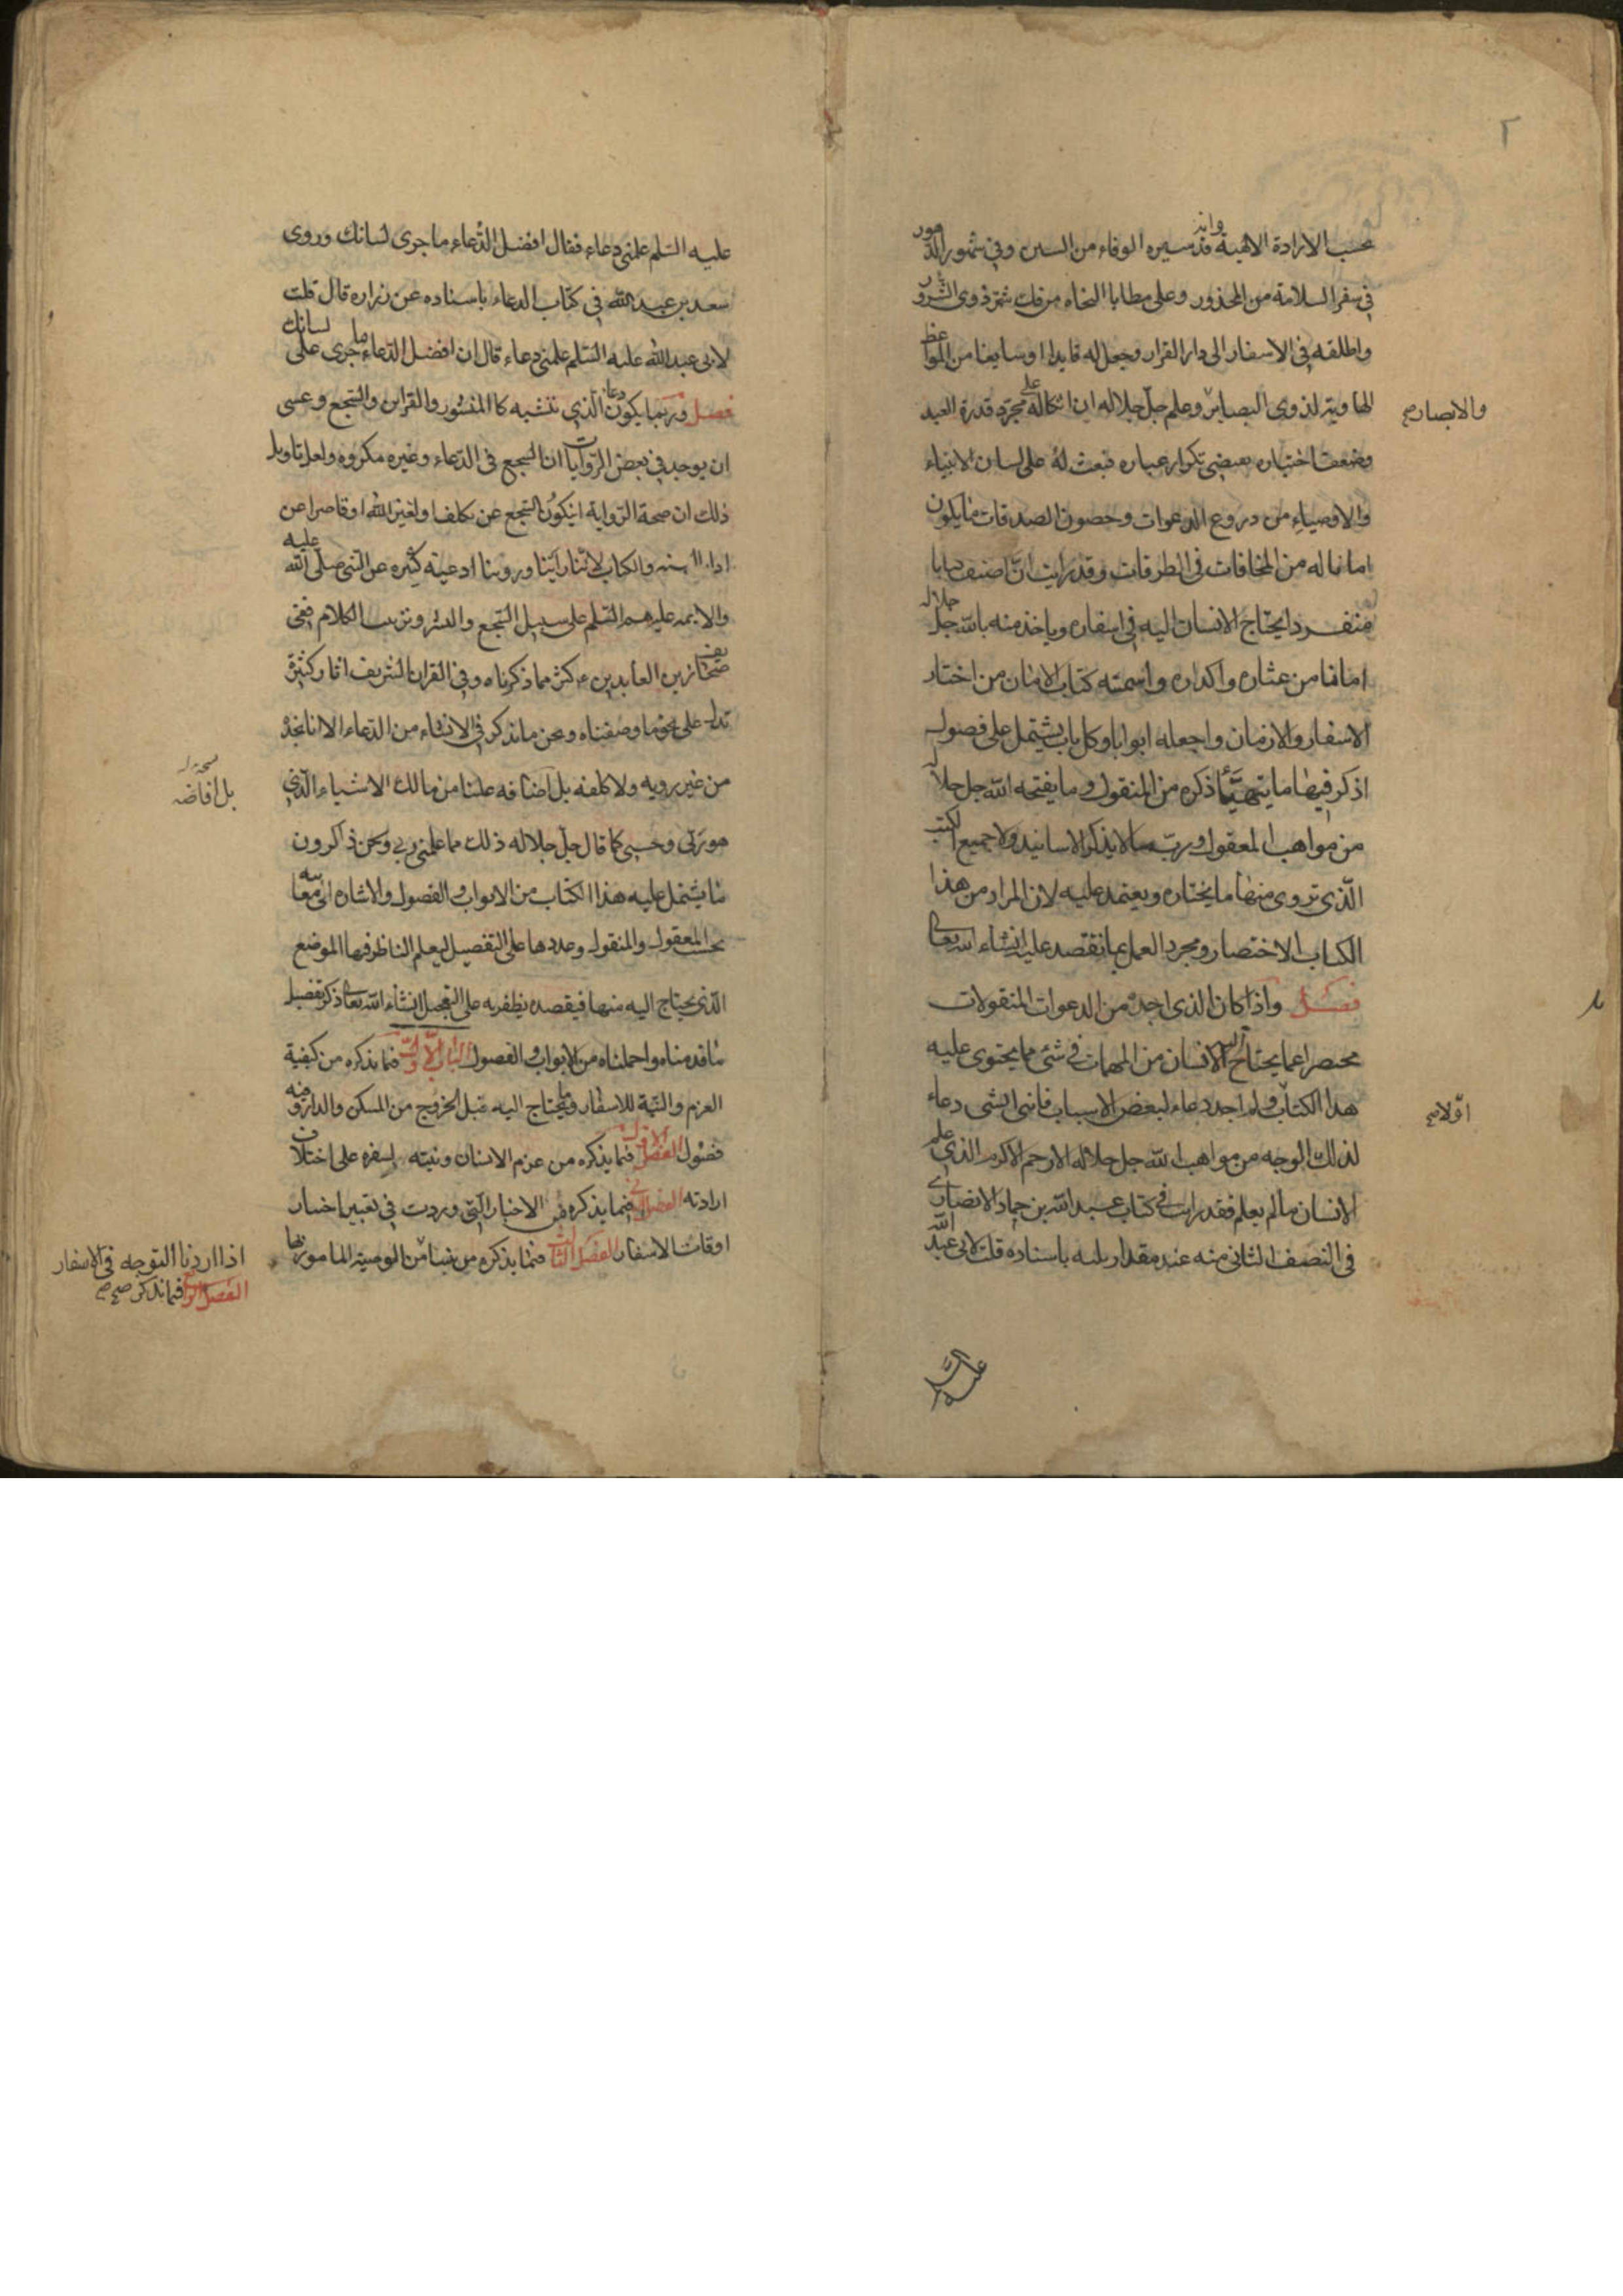 ٢
بحسب الارادة الالهية وانه قد سيره الوفاء من السين وفي شهور الدهور
في سفر السلامة من المحذور وعلى مطايا النجاه من فتك ذوى الشرور
واطلقه في الاسفار الى دار القرار وجعل له قايدا اوسايقا من المواعظ
الهاوية لذوى البصاير وعلم جل جلاله ان اتكاله على مجرد قدرة العبد
والابصار صح
وضعف اختياره يقتضى تكرار عباره فبعث له على لسان الانبياء
والاوصياء من دروع الدعوات وحصون الصدقات ما يكون
امانا له من المخافات فى الطرقات وقد رايت ان اصنف كتابا
منفردا يحتاج الانسان اليه فى اسفاره وياخذ منه بالله جل جلاله
امانا من عثاره واكداره واسمته كتاب الامان من اخطار
الاسفار والازمان واجعله ابوابا وكل باب يشتمل على فصول
اذكر فيها ما يتهيأ ذكره من المنقول وما يفتحه الله جل جلاله
من مواهب المعقول وربما لا يذكر الاسانيد ولا جميع الكتب
الّذى تروى منها ما يختاره ويعتمد عليه لان المراد من هذا
الكتاب الاختصار ومجرد العمل بما نقصد عليه انشاء الله تعالى
فصل واذا كان الذى اجده من الدعوات المنقولات
مختصرا عما يحتاج اليه الانسان من المهمات فى شئ مما يحتوى عليه
هذا الكتاب ولم اجد دعاء لبعض الاسباب فانى انشى دعاء
اوّلا صح
لذلك الوجه من مواهب الله جل جلاله الارحم الاكرم الذى علم
الانسان ما لم يعلم فقد رايت فى كتاب عبد الله بن حماد الانصارى
فى النصف الثانى منه عند مقدار ثلثه باسناده قلت لابى عبد الله
عليه
عليه السّلم علمنى دعاء فقال افضل الدّعاء ما جرى لسانك وروى
سعد بن عبد الله فى كتاب الدعاء باسناده عن زراره قال قلت
لابى عبد الله عليه السّلم علمنى دعاء قال ان افضل الدّعاء ما جرى على لسانك
فصل وربما يكون دعانا الّذى ننشيه كالمنثور والقراين والسّجع وعسى
ان يوجد فى بعض الرّوايات ان السجع فى الدّعاء وغيره مكروه ولعل تاويل
ذلك ان صحة الرّواية ان يكون السّجع عن تكلف او لغير الله او قاصرا عن
اداب السنه والكتاب لانّنا رأينا وروينا ادعية كثيره عن النّبى صلّى الله عليه
والايمه عليهم السّلم على سبيل السّجع والنثر وترتيب الكلام ففى
صحائف زين العابدين ع كثر مما ذكرناه وفى القران الشريف اثار كثيرة
تدل على نحو ما وصفناه ونحن ما نذكر فى الانشاء من الدّعاء الا انا نجد
من غير رويه ولا كلفه بل اضافه علينا من مالك الاشياء الّذى
بل افاضه
هو ربّى وحسبى كما قال جل جلاله ذلك مما علمنى ربى ونحن ذاكرون
ما يشتمل عليه هذا الكتاب من الابواب والفصول والاشاره الى معانيه
بحسب المعقول والمنقول وعددها على التفصيل ليعلم الناظر فيها الموضع
الّذى يحتاج اليه منها فيقصده يظفر به على التعجيل انشاء الله تعالى ذكر تفصيل
ما قدمناه واجملناه من الابواب والفصول الباب الاوّل فيما نذكره من كيفية
العزم والنيّة للاسفار وما يحتاج اليه قبل الخروج من المسكن والدار وفيه
فصول الفصل الاوّل فيما نذكره من عزم الانسان ونيته لسفره على اختلاف
ارادته الفصل الثانى فيما نذكره من الاخبار الّتى وردت فى تعيين اختيار
اوقات الاسفار الفصل الثالث فيما نذكره من نيتنا من الوصية المامور بها
اذا اردنا التوجه فى الاسفار
الفصل الرابع فيما نذكر صح صح